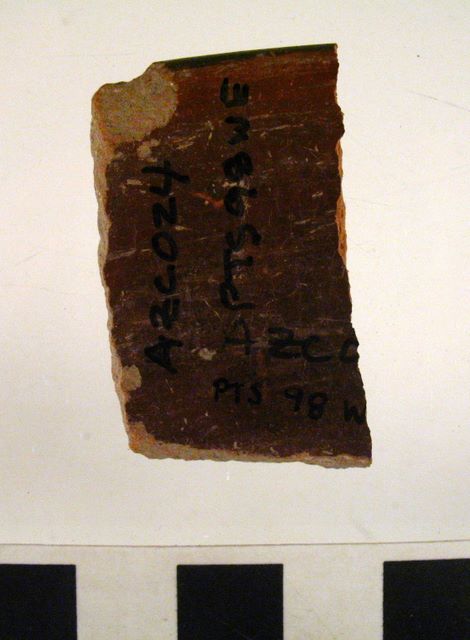 AZC024
PTS98WE
ZCC
PTS 98 W